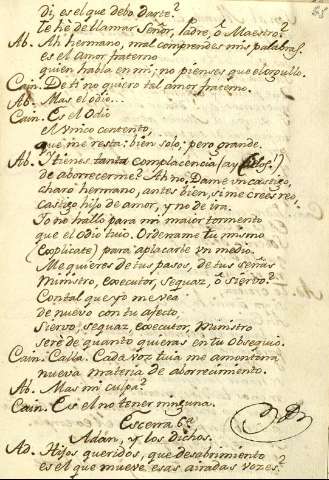 di, es el que debo darte?
te hè de llamar Señor, Padre, ô Maestro?
Ab. Ah hermano, mal comprendes mis palabras,
es el amor fraterno
quien habla en mi; no pienses que el orgullo.
Cain. De ti no quiero tal amor fraterno.
Ab. Mas el odio...
Cain. Es el Odio
el Vnico contento,
que me resta: bien solo; pero grande.
Ab. Ttienes tanta complacencia (ay Cielos!)
de aborrecerme? Ah no: Dame vn castigo,
charo hermano, antes bien, si me crees reo,
castigo hijo de amor, y no de ira.
Yo no hallo para mi maior tormento
que el odio tuio. Ordename tu mismo
(explicate) para aplacarte vn medio.
Me quieres de tus pasos, de tus señas
Ministro, executor, sequaz, ô siervo?
Con tal que yo me vea
de nuevo con tu afecto,
Siervo, sequaz, executor, Ministro
serè de quanto quieras en tu Obsequio.
Cain. Calla. Cada voz tuia me amontona
nueva materia de aborrecimiento.
Ab. Mas mi culpa?
Cain. Es el no tener ninguna.
Escena 6ª
Adán, y los dichos.
Ad. Hijos queridos, que desabrimiento
es el que mueve esas airadas vozes?